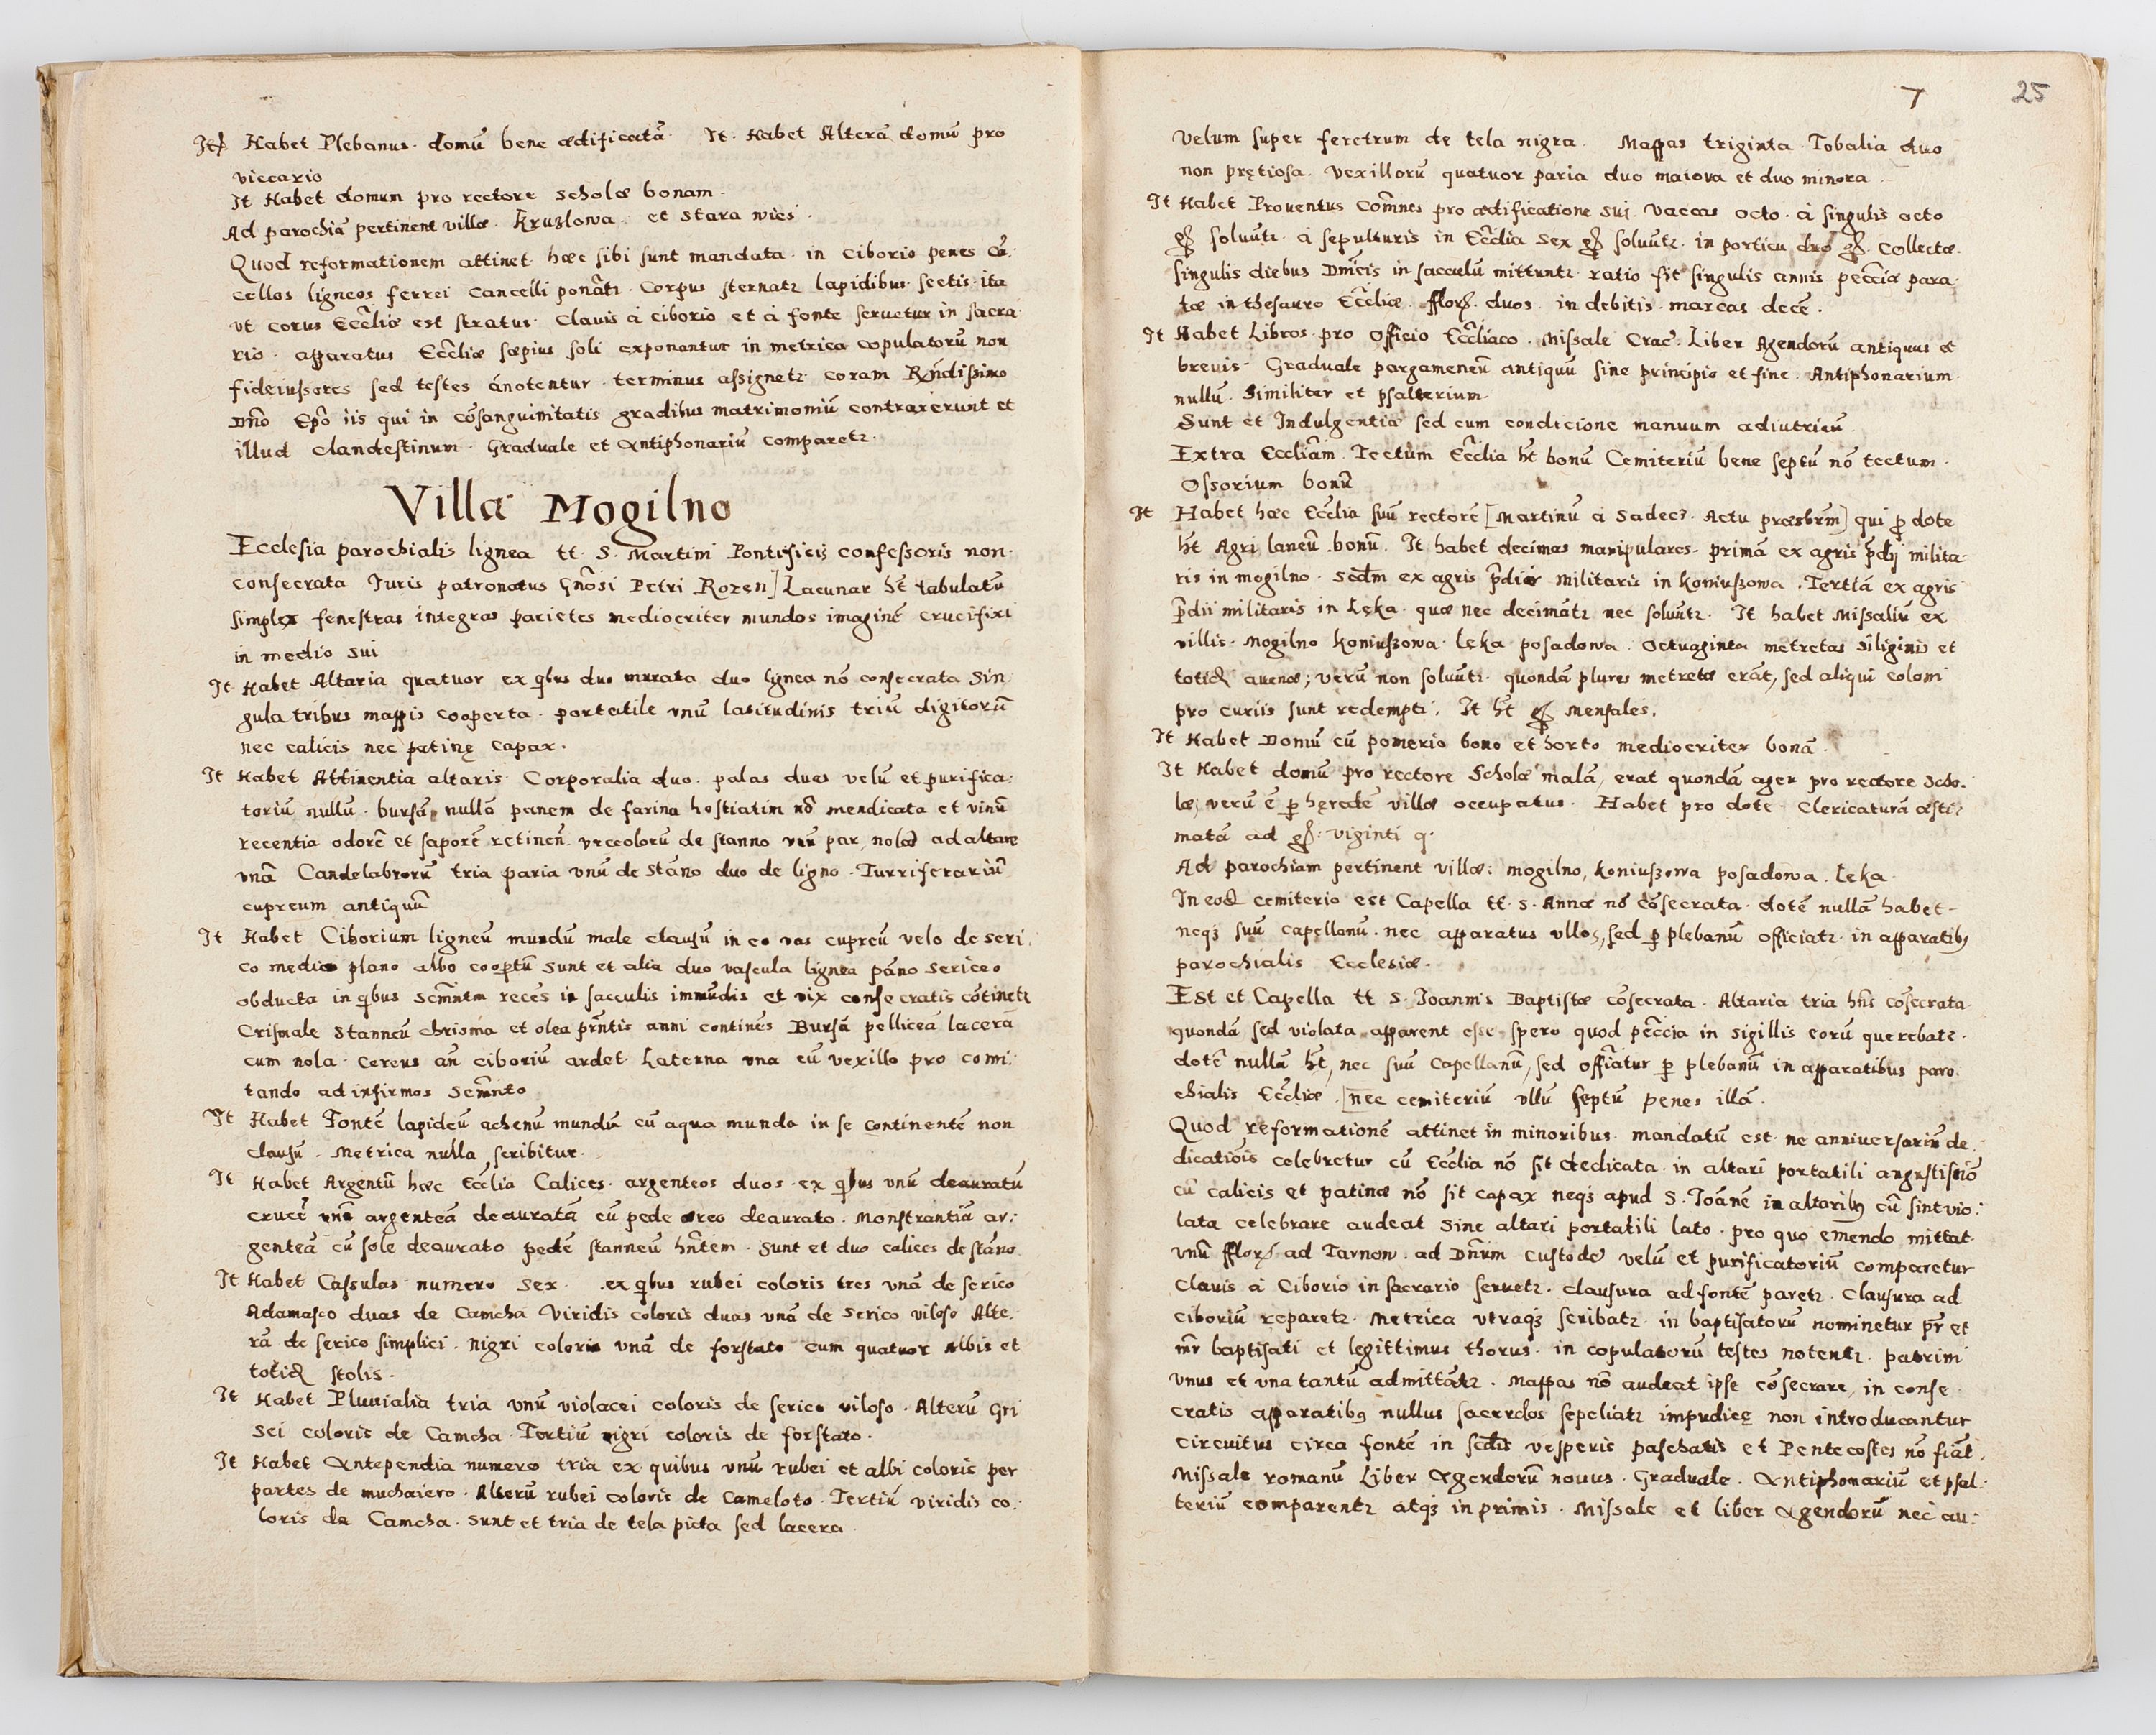 It Habet Plebanus domū bene ædificatā. It. Habet Alterā domū pro
viccario
It Habet domum pro rectore scholæ bonam.
Ad parochiā pertinent villæ. Kruzlowa et stara wies.
Quod reformationem attinet hæc sibi sunt mandata in ciborio penes cā:
cellos ligneos ferrei cancelli ponāt. Corpus sternat lapidibus sectis ita
vt corus Eccliæ est stratus. Clavis à ciborio et à fonte servetur in sacra
rio. apparatus Eccliæ sæpius soli exponantur in metrica copulatorū non
fideiussores sed testes ānotentur. terminus assignet coram Rndissimo
Dnō Epō iis qui in cōsanguinitatis gradibus matrimoniū contraxerunt et
illud clandestinum. Graduale et Antiphonariū comparet.
Villa Mogilno
Ecclesia parochialis lignea tt. S. Martini Pontificis confessoris non
consecrata Iuris patronatus Gnōsi Petri Rozen] Lacunar ht tabulatū
simplex fenestras integras parietes mediocriter mundos imaginē crucifixi
in medio sui
It Habet Altaria quatuor ex qbus duo murata duo lignea nō consecrata Sin
gula tribus mappis cooperta. portatile vnū latitudinis triū digitorū
nec calicis nec patinę capax.
It Habet Attinentia altaris Corporalia duo. palas duas velū et purifica:
toriū nullū. bursā nullā panem de farina hostiatim nō mendicata et vinū
recentia odorē et saporē retinen. vrceolorū de stanno vnū par, nolā ad altare
vnā Candelabrorū tria paria vnū de stāno duo de ligno. Turriferariū
cupreum antiquū
It Habet Ciborium ligneū mundū male clausū in eo vas cupreū velo de seri
co medio plano albo coopertū sunt et alia duo vascula lignea pāno sericeo
obducta in qbus scmntm reces in sacculis immūdis et vix consecratis cōtinet
Crismale stanneū chrisma et olea prntis anni continēs Bursā pelliceā lacerā
cum nola. Cereus an ciboriū ardet. Laterna vna cū vexillo pro comi
tando ad infirmos scmnto
It Habet Fontē lapideū ahenū mundū cū aqua munda in se continentē non
clausū. Metrica nulla scribitur.
It Habet Argentū hæc Ecclia Calices argenteos duos. ex qbus vnū deauratū
crucē vnā argenteā deauratā cū pede æreo deaurato. Monstrantiā ar:
genteā cū sole deaurato pedē stanneū hntem. Sunt et duo calices de stāno
It Habet Cassulas numero sex. ex qbus rubei coloris tres vnā de serico
Adamasco duas de Camcha Viridis coloris duas vnā de serico viloso Alte:
rā de serico simplici. nigri coloris vnā de forstato cum quatuor albis et
totid stolis.
It Habet Pluvialia tria vnū violacei coloris de serico viloso. Alterū Gri
sei coloris de Camcha. Tertiū nigri coloris de forstato.
It Habet Antependia numero tria ex quibus vnū rubei et albi coloris per
partes de muchaiero. Alterū rubei coloris de Cameloto. Tertiū viridis co:
loris de Camcha. Sunt et tria de tela picta sed lacera.
7 25
Velum super feretrum de tela nigra. Mappas triginta. Tobalia duo
non prętiosa. Vexillorū quatuor paria duo maiora et duo minora.
It Habet Proventus Comnes pro ædificatione sui. Vaccas octo. à singulis octo
gš soluūt. à sepulturis in Ecclia sex gš soluūt. in porticu duo gš. Collectæ
singulis diebus Dnicis in sacculū mittunt. ratio fit singulis annis peccia para
tæ in thesauro Eccliæ fflor. duos in debitis marcas decē.
It Habet Libros pro Officio Eccliaco. Missale Crac. Liber Agendorū antiquus et
brevis. Graduale pargameneū antiquū sine principio et fine. Antiphonarium
nullū. Similiter et psalterium
Sunt et Indulgentiæ sed cum condicione manuum adiutricū
Extra Eccliam. Tectum Ecclia ht bonū Cemiteriū bene septū nō tectum.
Ossorium bonū
It Habet hæc Ecclia suū rectorē [Martinū à Sadec. Actu præsbrm] qui p dote
ht Agri laneū bonū. It habet decimas manipulares. primā ex agris pdij milita
ris in mogilno. Scdm ex agris pdii militaris in koniuszowa. Tertiā ex agris
pdii militaris in Lęka. quæ nec decimāt nec soluūt. It habet Missaliū ex
villis Mogilno koniuszowa Lęka posadowa. Octuaginta metretas siliginis et
totid avenæ; verū non soluūt. quondā plures metretæ erāt, sed aliqui coloni
pro curiis sunt redempti. It ht gš mensales.
It Habet Domū cū pomerio bono et horto mediocriter bonā.
It Habet domū pro rectore Scholæ malā, erat quondā ager pro rectore Scho:
læ, verū ē p hęredē villæ occupatus. Habet pro dote Clericaturā æsti:
matā ad gš: viginti q.
Ad parochiam pertinent villæ: mogilno, koniuszowa posadowa. Lęka.
In eod cemiterio est Capella tt. S. Annæ nō cōsecrata. dotē nullā habet
neq suū capellanū. nec apparatus ullos, sed p plebanū officiat in apparatib
parochialis Ecclesiæ.
Est et Capella tt S. Joannis Baptistæ cōsecrata. Altaria tria hns cōsecrata
quondā sed violata apparent esse spero quod peccia in sigillis eorū querebat.
dotē nullā ht, nec suū capellanū, sed offiatur p plebanū in apparatibus paro
chialis Eccliæ. [nec cemiteriū ullū septū penes illā.
Quod reformationē attinet in minoribus mandatū est ne anniversariū de:
dicatiōis celebretur cū Ecclia nō sit dedicata. in altari portatili angustissio
cū calicis et patinæ nō sit capax neq apud S. Joānē in altarib cū sint vio:
lata celebrare audeat sine altari portatili lato. pro quo emendo mittat
vnū fflor. ad Tarnow. ad Dnum Custodē velū et purificatoriū comparetur
Clavis à Ciborio in sacrario servet. clausura ad fontē paret. Clausura ad
ciboriū reparet. Metrica vtraq scribat. in baptisatorū nominetur pr et
mr baptisati et legittimus thorus. in copulatorū testes notent. patrini
vnus et vna tantū admittāt. Mappas nō audeat ipse cōsecrare, in conse
cratis apparatib nullus sacerdos sepeliat impudicę non introducantur
circuitus circa fontē in scdis vesperis paschatis et Pentecostes nō fiāt.
Missale romanū Liber Agendorū novus. Graduale. Antiphonariū et psal:
teriū comparent atq in primis. Missale et liber Agendorū nec au: